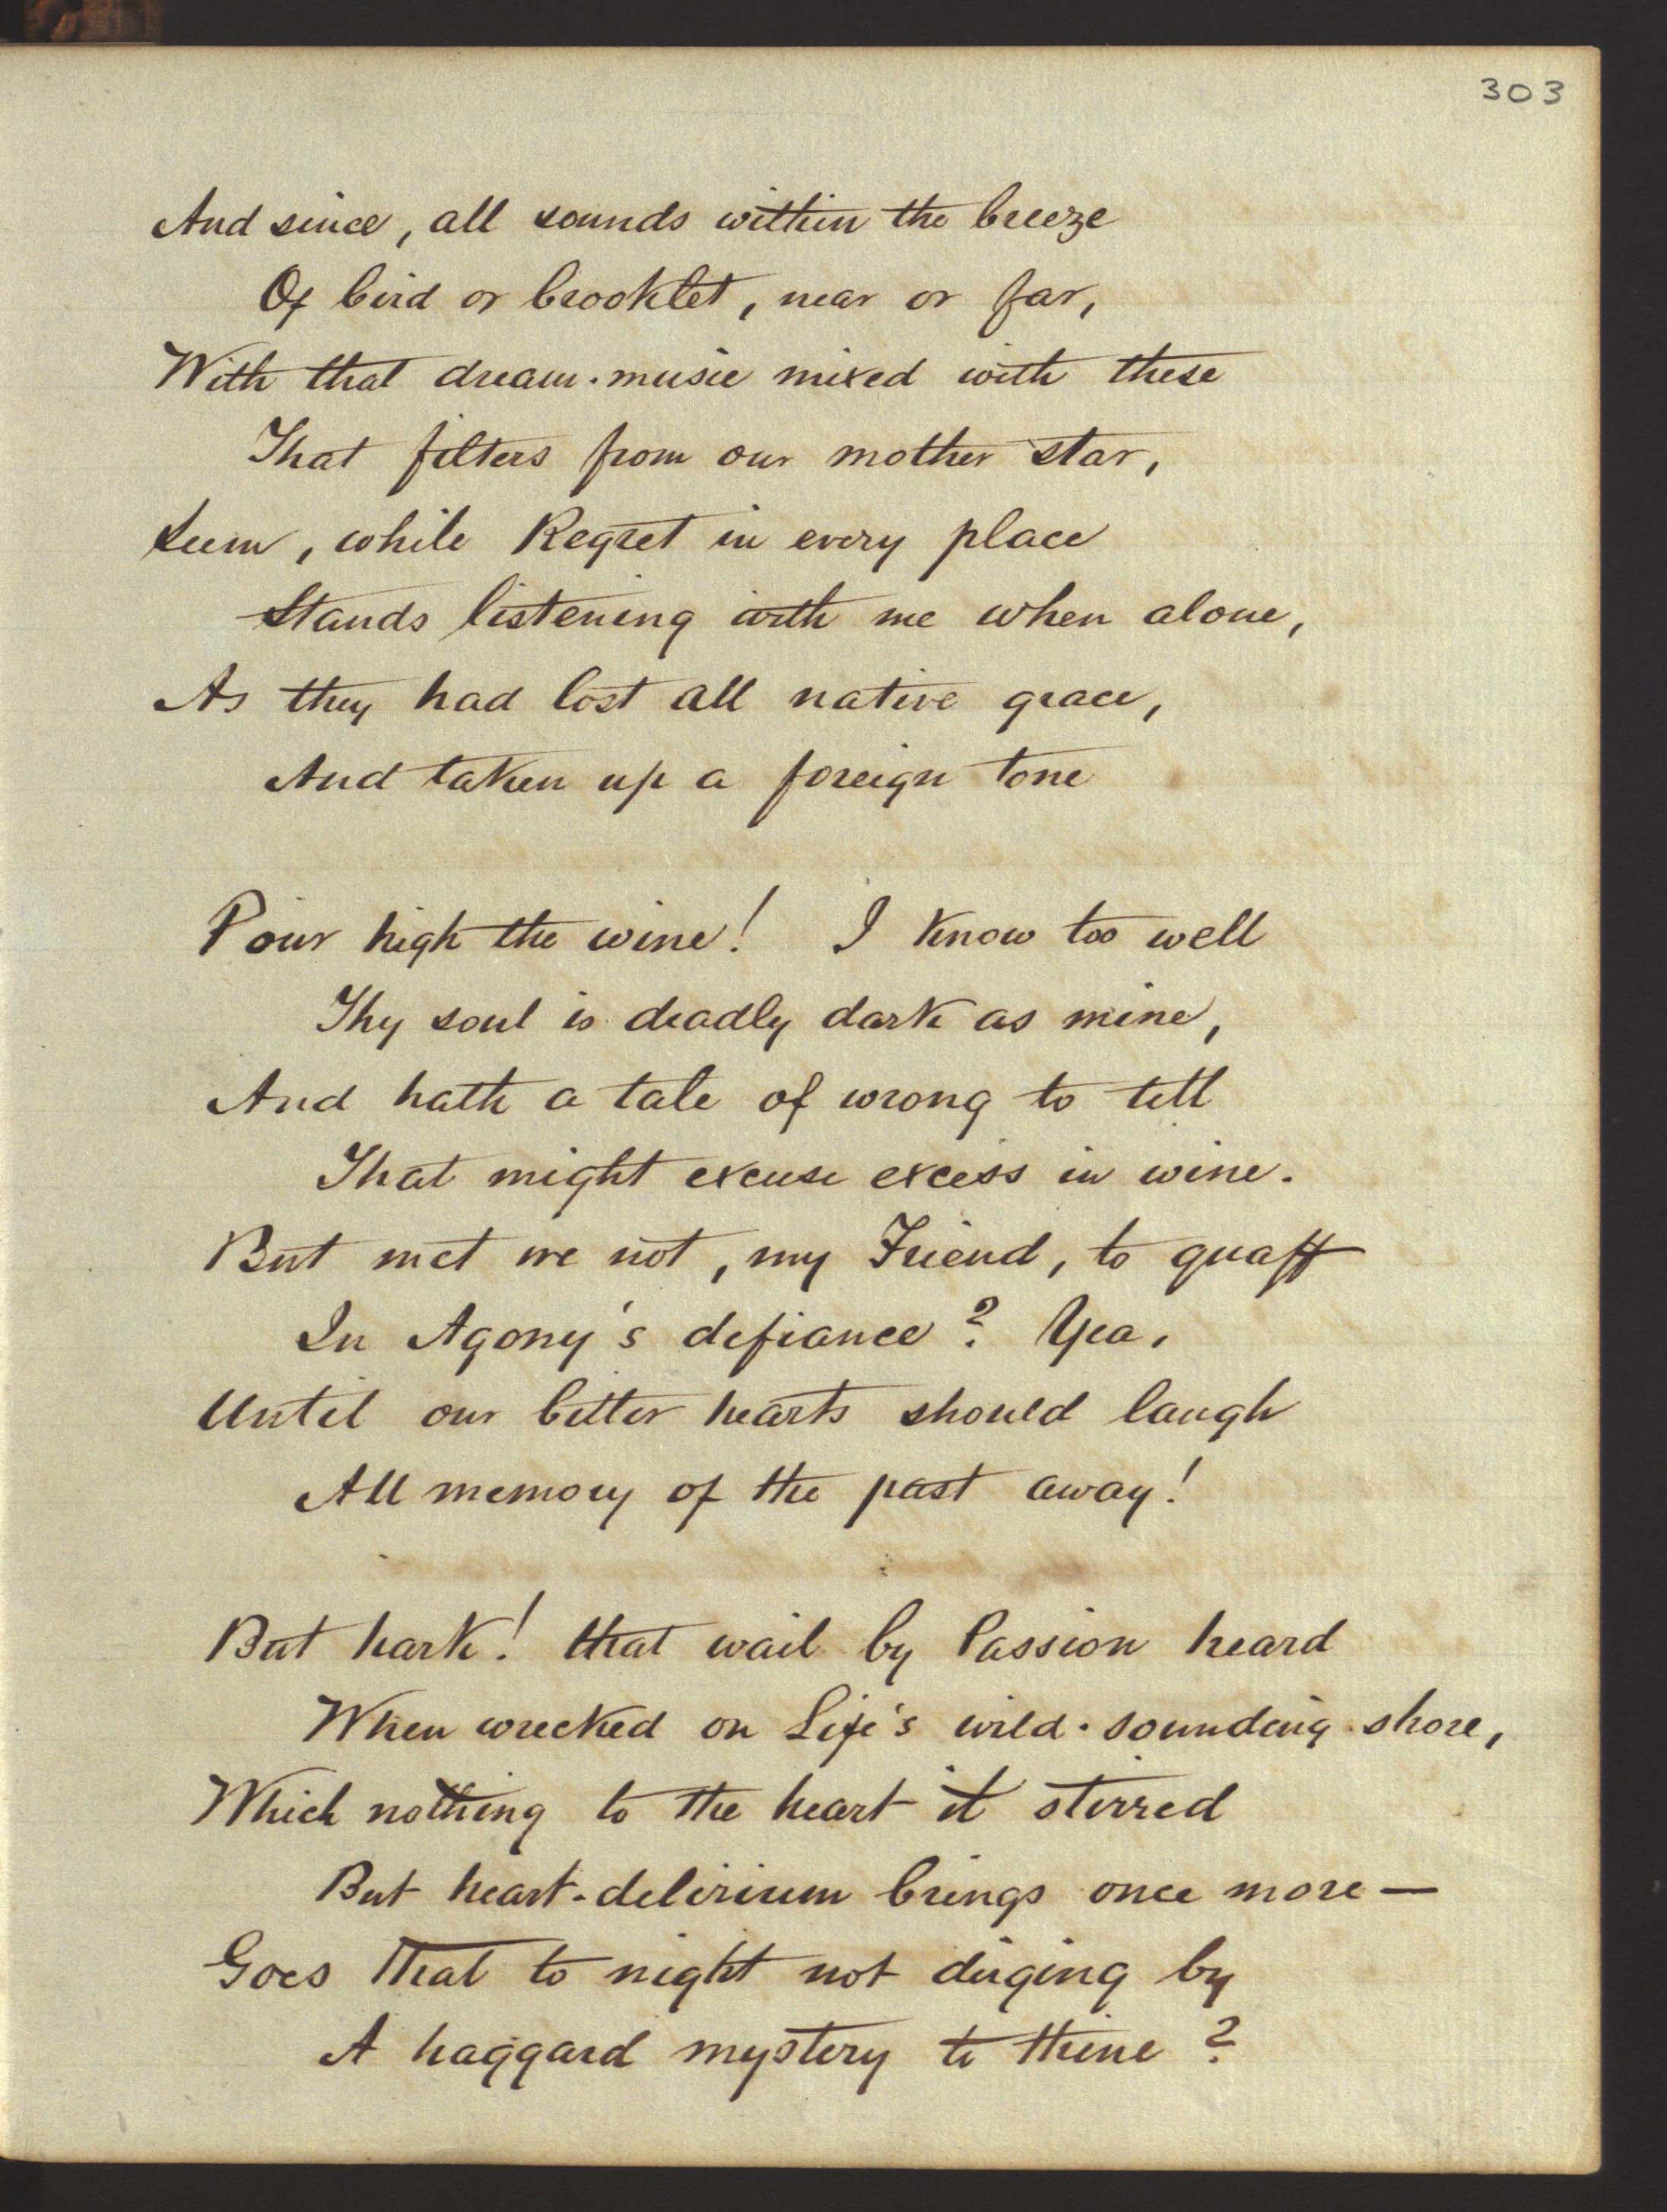 303
And since, all sounds within the breeze
Of bird or brooklet, near or far,
With that dream-music mixed with these
That filters from our mother star,
Seem, while Regret in every place
Stands listening with me when alone,
As they had lost all native grace,
And taken up a foreign tone
Pour high the wine! I know too well
Thy soul is deadly dark as mine,
And hath a tale of wrong to tell
That might excuse excess in wine.
But met we not, my Friend, to quaff
In Agony's defiance? Yea,
Until our bitter hearts should laugh
All memory of the past away!
But hark! that wail by Passion heard
When wrecked on Life's wild-sounding shore,
Which nothing to the heart it stirred
But heart-delirium brings once more—
Goes that to night not dirging by
A haggard mystery to thine?